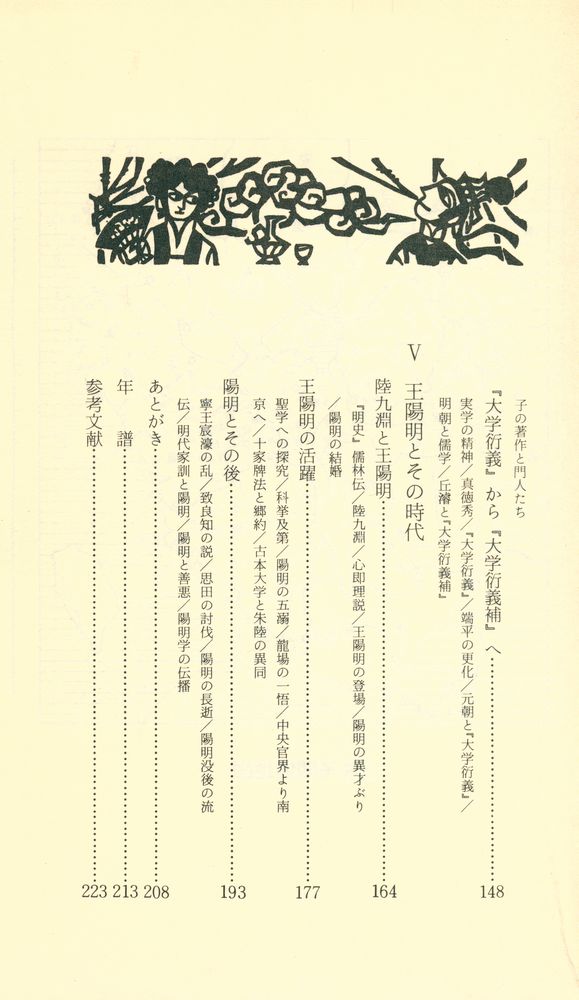 子の著作と門人たち
『大学衍義』から『大学衍義補』へ……148
実学の精神／真徳秀／『大学衍義』／端平の更化／元朝と『大学衍義』／
明朝と儒学／丘濬と『大学衍義補』
Ⅴ 王陽明とその時代
陸九淵と王陽明……164
『明史』儒林伝／陸九淵／心即理説／王陽明の登場／陽明の異才ぶり
／陽明の結婚
王陽明の活躍……177
聖学への探究／科挙及第／陽明の五溺／龍場の一悟／中央官界より南
京へ／十家牌法と郷約／古本大学と朱陸の異同
陽明とその後……193
寧王宸濠の乱／致良知の説／思田の討伐／陽明の長逝／陽明没後の流
伝／明代家訓と陽明／陽明と善悪／陽明学の伝播
あとがき……208
年 譜……213
参考文献……223